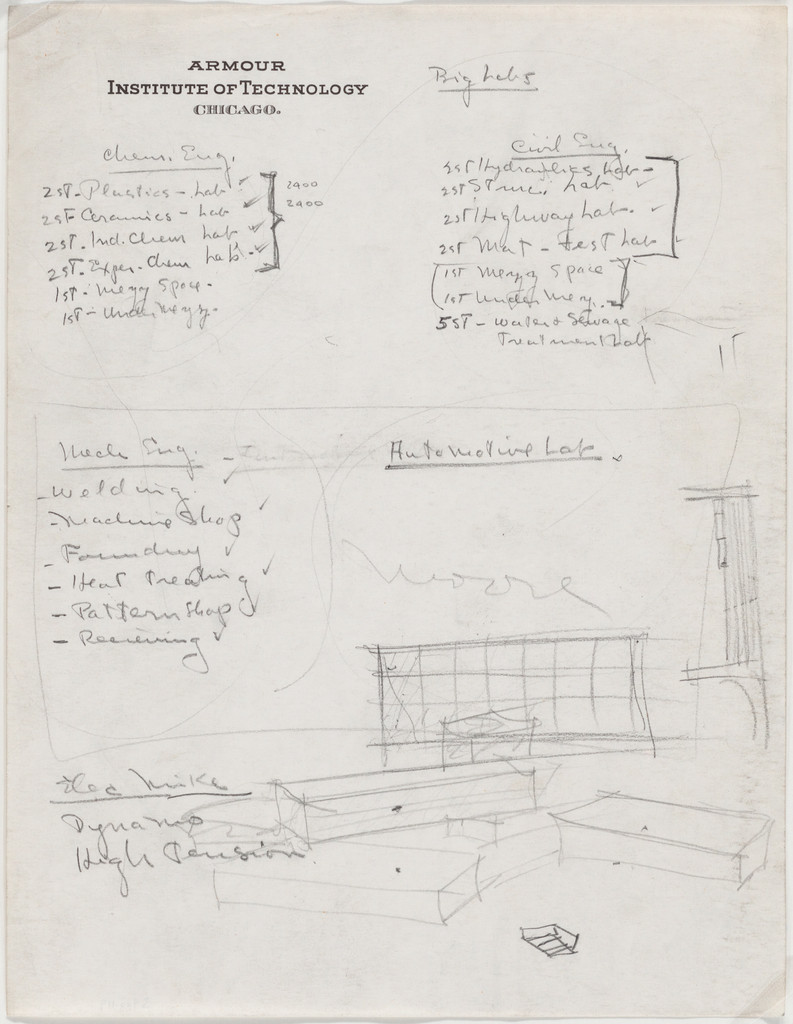 ARMOUR
INSTITUTE OF TECHNOLOGY
CHICAGO.
Big Labs
Chem. Eng.
2ST-Plastics-Lab
2ST Ceramics-Lab
2ST. Ind. Chem Lab
2ST. Exper. Chem Lab
1ST-Mezz Space-
1ST-Under Mezz-
2400
2400
Civil Eng.
2ST Hydraulics Lab-
2ST Struc. Lab.
2ST Highway Lab.
2ST Mat-Test Lab
1ST Mezz Space
1ST Under Mezz.
5ST-Water & Sewage
Treatment Lab
Mech Eng.
Automotive Lab
-Welding
-Machine Shop
-Foundry
-Heat Treating
-Pattern Shop
-Receiving
Moore
Elec
Dynamo
High Tension